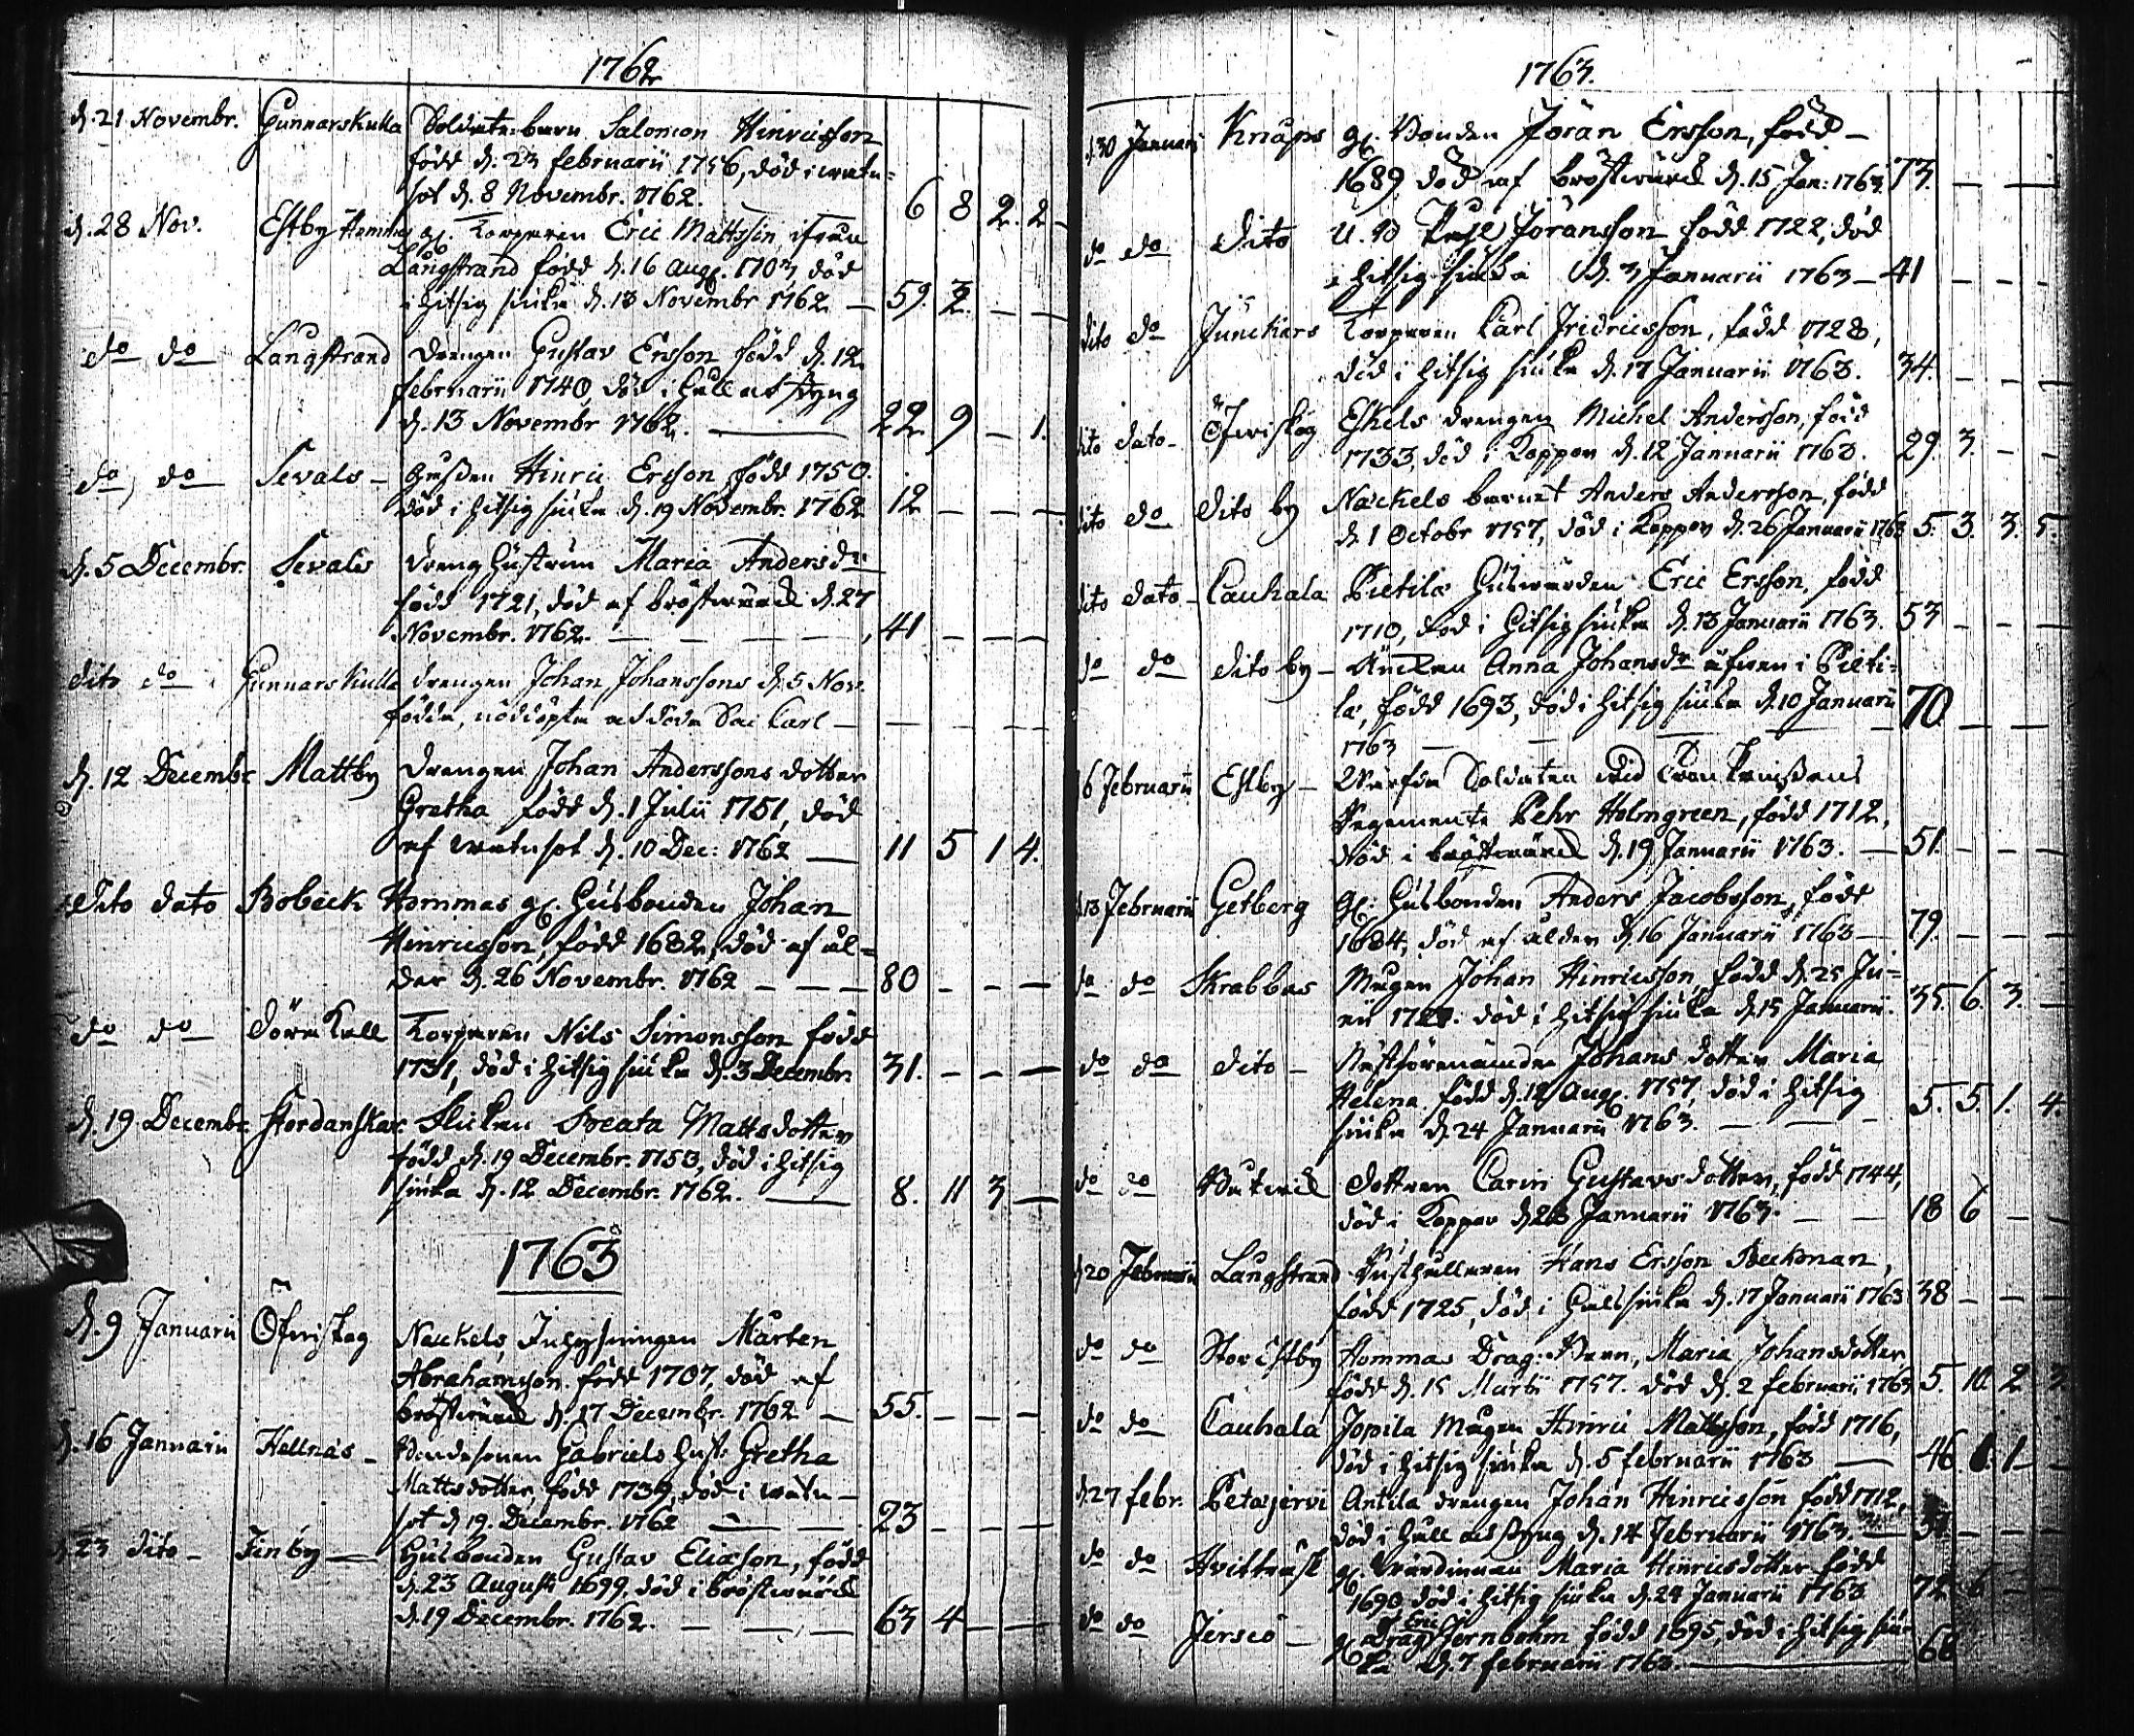 1762
d. 21 Novembr. Gunnarskulla Soldate barn Salomon Hinricsson
född d. 23 februarii 1756, död i watu=
sot d. 8 Novembr. 1762. 6 8 2. 2
d. 28 Nov. Estby gl. Torparen Eric Mattsson ifrån
Långstrand född d. 16 Aug. 1703, död
i hitsig siuka d. 13 Novembr 1762 — 59. 2. — —
do do Långstrand drengen Gustav Ersson född d. 12
februarii 1740, död i håll och styng
d. 13 Novembr 1762. — 22. 9 — 1.
do do Sevals — Gossen Hinric Ersson född 1750.
död i hitsig siuka d. 19 Novembr. 1762 12 — — —
d. 5 Decembr. Sevals dreng hustrun Maria Andersdr
född 1721, död af bröstwärck d. 27
Novembr. 1762. — — — — 41 — — —
dito do Gunnarskulla drengen Johan Johanssons d. 5 Nov.
födda, nöddöpta och döda Carl — — — —
d. 12 Decembr Mattby drengen Johan Anderssons dotter
Gretha född d. 1 Julii 1751, död
af watusot d. 10 Dec: 1762 — 11 5 1 4.
dito dato Bobäck Hommas gl. Husbonden Johan
Hinricsson, född 1682, död af ål=
der d. 26 Novembr. 1762 — — — 80 — — —
do do Torparen Nils Simonsson född
1731, död i hitsig siuka d. 3 Decembr. 31. — — —
d. 19 Decembr Flickan Beata Mattsdotter
född d. 19 Decembr. 1753, död i hitsig
siuka d. 12 Decembr. 1762. — 8. 11 3 —
1763
d. 9 Januarii Öfwerskog Nackels, Inhysningen Mårten
Abrahamsson född 1707, död af
bröstwärck d. 17 Decembr. 1762 — 55. — — —
d. 16 Januarii Hellnäs — Bondesonen Gabriels hust. Gretha
Mattsdotter, född 1739, död i watu—
sot d. 19 Decembr. 1762 — — 23 — — —
d. 23 dito — Finby — Husbonden Gustav Eliæson, född
d. 23 Augusti 1699, död i bröstwärck
d. 19 Decembr. 1762. — — — 63 4 — —
1763.
d. 30 Januarii Knaps gl. Bonden Jöran Ersson, född —
1689, död af bröstwärck d. 15 Jan: 1763. 73. — —
do do dito Jöransson född 1722, död
i hitsig siuka d. 3 Januarii 1763 — 41 — — —
dito do Junckars Torparen Carl Fridricsson, född 1728,
död i hitsig siuka d. 17 Januarii 1763. 34. — — —
dito dato — Öfwerskog Eskels drengen Michel Andersson, född
1733, död i Koppor d. 12 Januarii 1763. 29. 3. — —
dito do dito by Nackels barnet Anders Andersson, född
d. 1 Octobr 1757, död i Koppor d. 26 Januarii 1763 5. 3. 3. 5.
dito dato — Cauhala Pietilä Husbonden Eric Ersson, född
1710, död i hitsig siuka d. 13 Januarii 1763. 53 — — —
do do dito by — Änckan Anna Johansdr äfwen i Pieti=
lä, född 1693, död i hitsig siuka d. 10 Januarii 70 — —
1763
6 Februarii Estby — Soldaten wid
Regemente Pehr Holmgreen, född 1712,
död i bröstwärck d. 19 Januarii 1763. — 51. — — —
d. 13 Februarii Getberg gl. Husbonden Anders Jacobsson, född
1684, död af ålder d. 16 Januarii 1763 — 79. — — —
do do Skrabbas Mågen Johan Hinricsson, född d. 25 Ju=
nii död i hitsig siuka d. 15 Januarii. 35. 6. 3. —
do do dito — Nästförenämde Johans dotter Maria
Helena född d. 12 Aug. 1757, död i hitsig
siuka d. 24 Januarii 1763. — — 5. 5. 1. 4.
do do dottren Carin Gustavsdotter, född 1744,
död i Koppor d. 28 Januarii 1763. — — 18 6 — —
d. 20 Februarii Långstrand Rusthållaren Hans Ersson Beckman,
född 1725, död i hållsiuka d. 17 Januarii 1763 38 — — —
do do Storöstby Hommas Drag: Barn, Maria Johansdotter,
född d. 15 Martii 1757. död d. 2 februarii 1763 5. 10. 2 3.
do do Cauhala Jopila Mågen Hinric Mattsson, född 1716,
död i hitsig siuka d. 5 februarii 1763 — 46. 1. 1 —
d. 27 febr. Petäjervi Antila drengen Johan Hinricsson född 1712,
död i håll och styng d. 14 Februarii 1763. — — —
do do Hvitträsk gl. Wärdinnan Maria Hinricsdotter född
1690 död i hitsig siuka d. 24 Januarii 1763 72 6 — —
do do Jersiö — gl. Drag: Eric Jernbohm född 1695, död i hitsig siu=
ka d. 7 februarii 1763. — 68